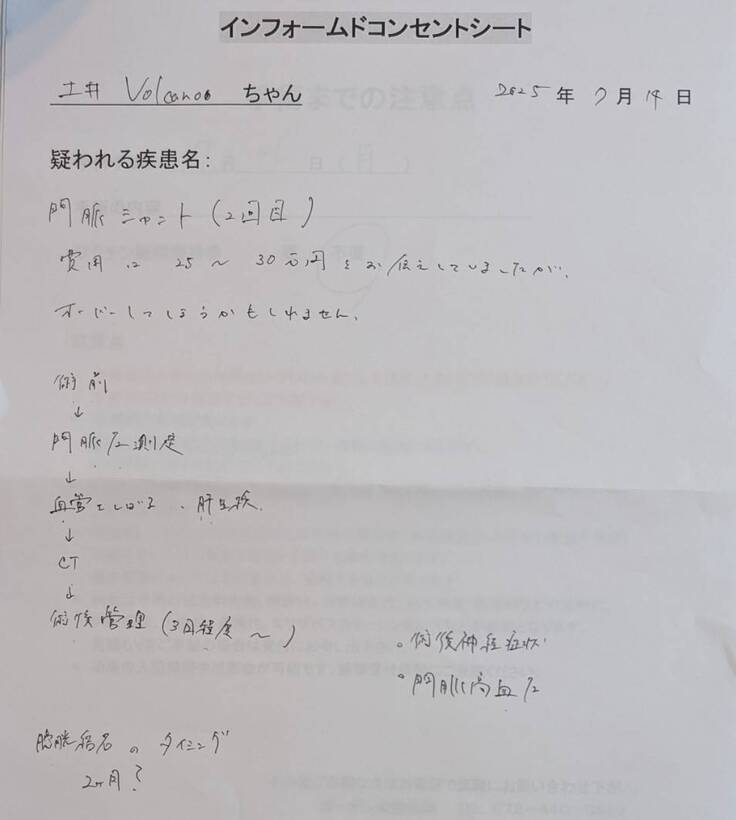 インフォームドコンセントシート
土井 Volcano ちゃん 2025年7月14日
疑われる疾患名:
門脈シャント(2回目)
費用は25〜30万円とお伝えしていましたが、
オーバーしてしまうかもしれません。
術前
↓
門脈圧測定
↓
血管をしばる、肝生検
↓
CT
↓
術後管理(3日程度〜)
。術後神経症状
。門脈高血圧
のタイミング
2ヶ月?